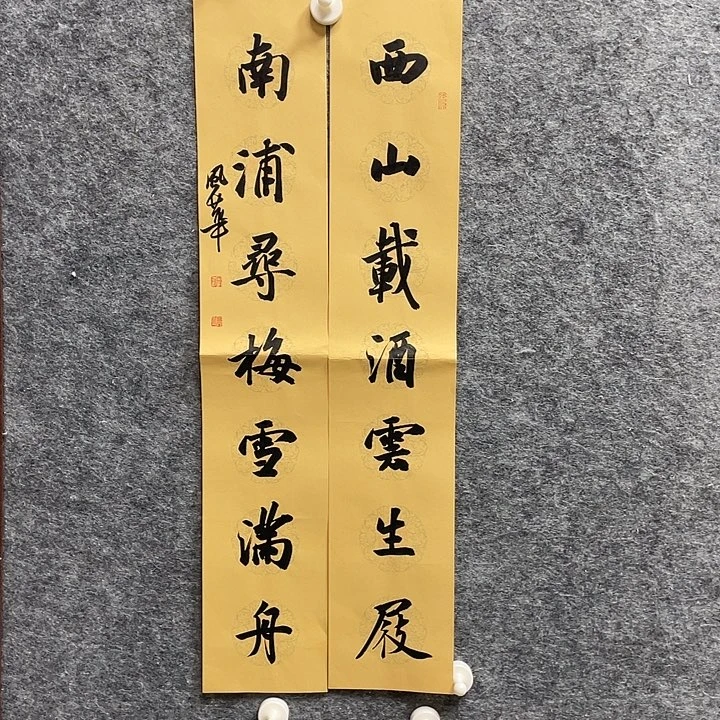 西山載酒雲生屐
南浦尋梅雪滿舟
風華